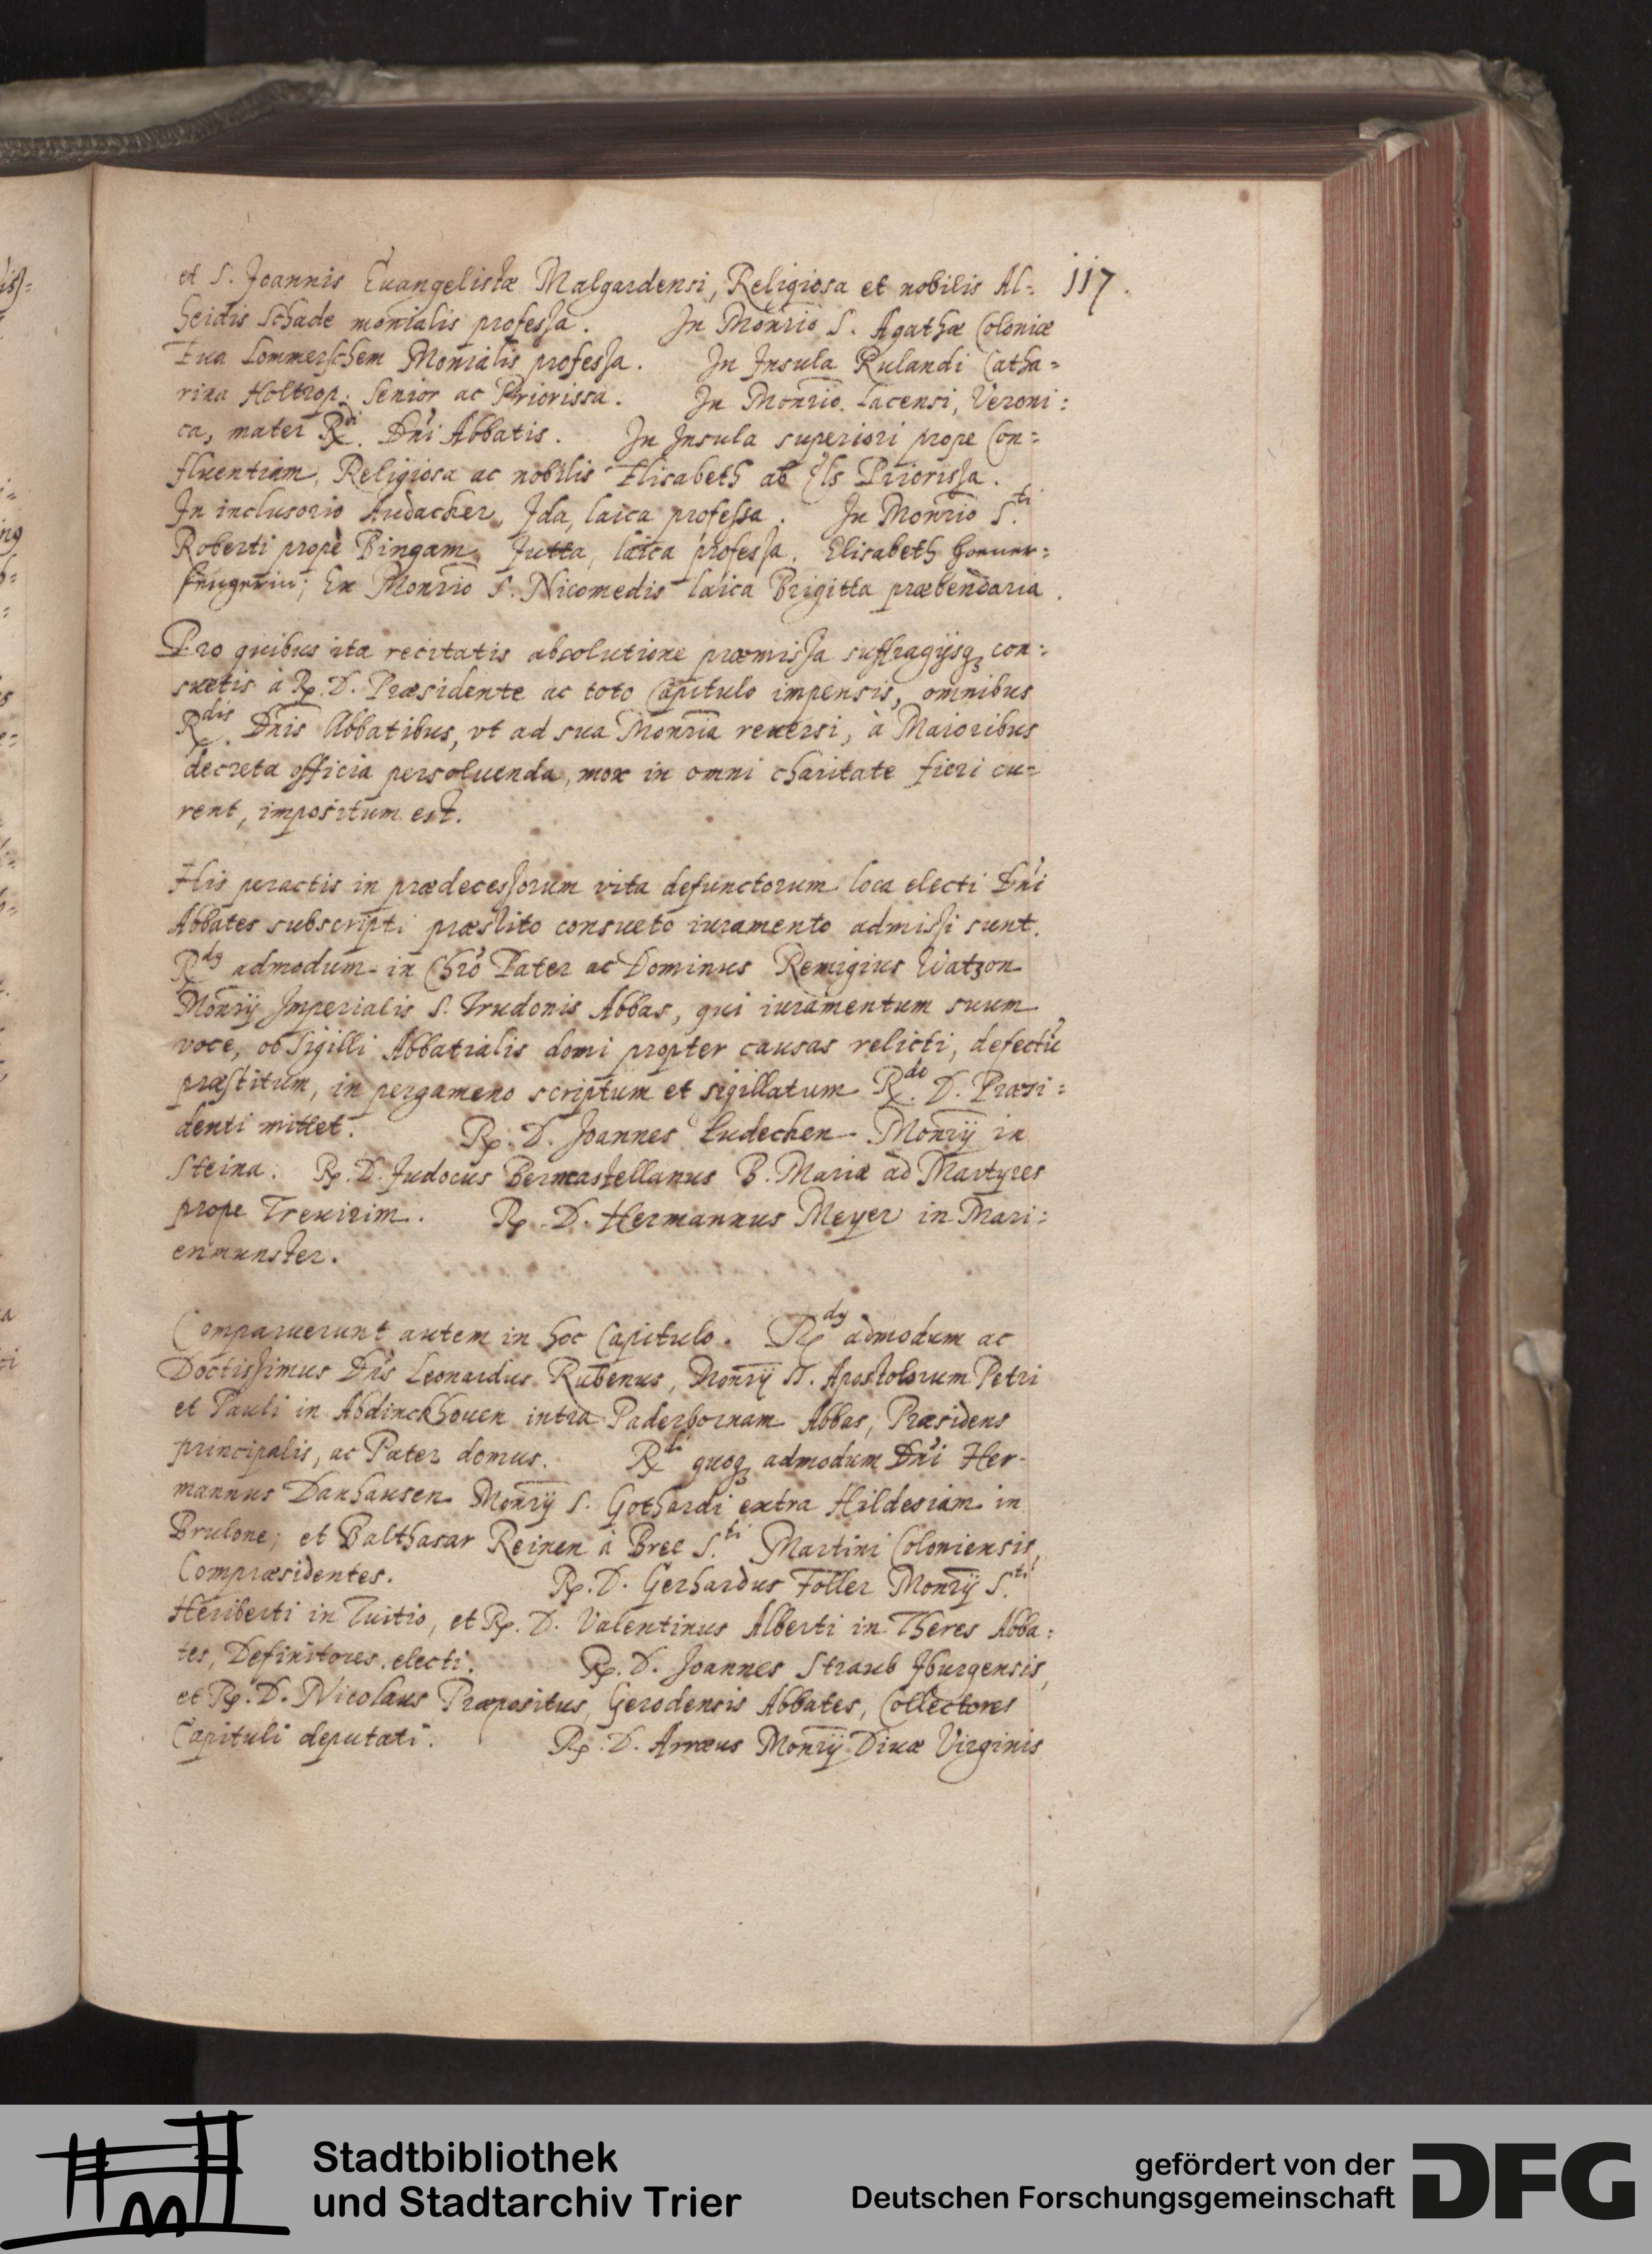 et S. Joannis Euangelistæ Malgardensi, Religiosa et nobilis Al=
117.
heidis Schade monialis professa. In Monrio S. Agathæ Coloniæ
Eua Lommerschem Monialis professa. In Insula Rulandi Catha=
rina Holtrop. Senior ac Priorissa. In Monrio Lacensi, Veroni:
ca, mater Rdi. Dni Abbatis. In Insula superiori prope Con=
fluentiam, Religiosa ac nobilis Elisabeth ab Els Priorissa.
In inclusorio Andacker, Ida, laica professa. In Monrio S.ti
Roberti propè Bingam Jutta, laica professa. Elisabeth
Ex Monrio S. Nicomedis laica Brigitta præbendaria.
Pro quibus ita recitatis absolutione præmissa suffragijsq3 con:
suetis à R. D. Præsidente ac toto Capitulo impensis, omnibus
Rdis. Dnis Abbatibus, vt ad sua Monria reuersi, à Maioribus
decreta officia persoluenda, mox in omni charitate fieri cu=
rent, impositum est.
His peractis in prædecessorum vita defunctorum loca electi Dni
Abbates subscripti præstito consueto iuramento admissi sunt.
Rdg admodum in Chro Pater ac Dominus Remigius Watzon
Monrij Imperialis S. Trudonis Abbas, qui iuramentum suum
voce, ob Sigilli Abbatialis domi propter causas relicti, defectu
præstitum, in pergameno scriptum et sigillatum Rdo. D. Præsi:
denti mittet. R. D. Joannes Ludechen Monrij in
Steina. R. D. Judocus Berncastellanus B. Mariæ ad Martyres
prope Treuirim. R. D. Hermannus Meyer in Mari:
enmunster.
Comparuerunt autem in hoc Capitulo. Rdg admodum ac
Doctissimus Dns Leonardus Rubenus, Monrij SS. Apostolorum Petri
et Pauli in Abdinckhouen intra Paderbornam Abbas, Præsidens
principalis, ac Pater domus. Rdi quoq3 admodum Dni Her-
mannus Danhausen Monrij S. Gothardi extra Hildesiam in
Brulone; et Balthasar Reinen à Bree S.ti Martini Coloniensis,
Compræsidentes. R. D. Gerhardus Foller Monrij S.ti
Heriberti in Tuitio, et R. D. Valentinus Alberti in Theres Abba:
tes, Definitores electi. R. D. Joannes Straub Iburgensis,
et R. D. Nicolaus Præpositus, Gerodensis Abbates, Collectores
Capituli deputati. R. D. Monrij Diuæ Virginis
Stadtbibliothek
und Stadtarchiv Trier
gefördert von der
Deutschen Forschungsgemeinschaft
DFG